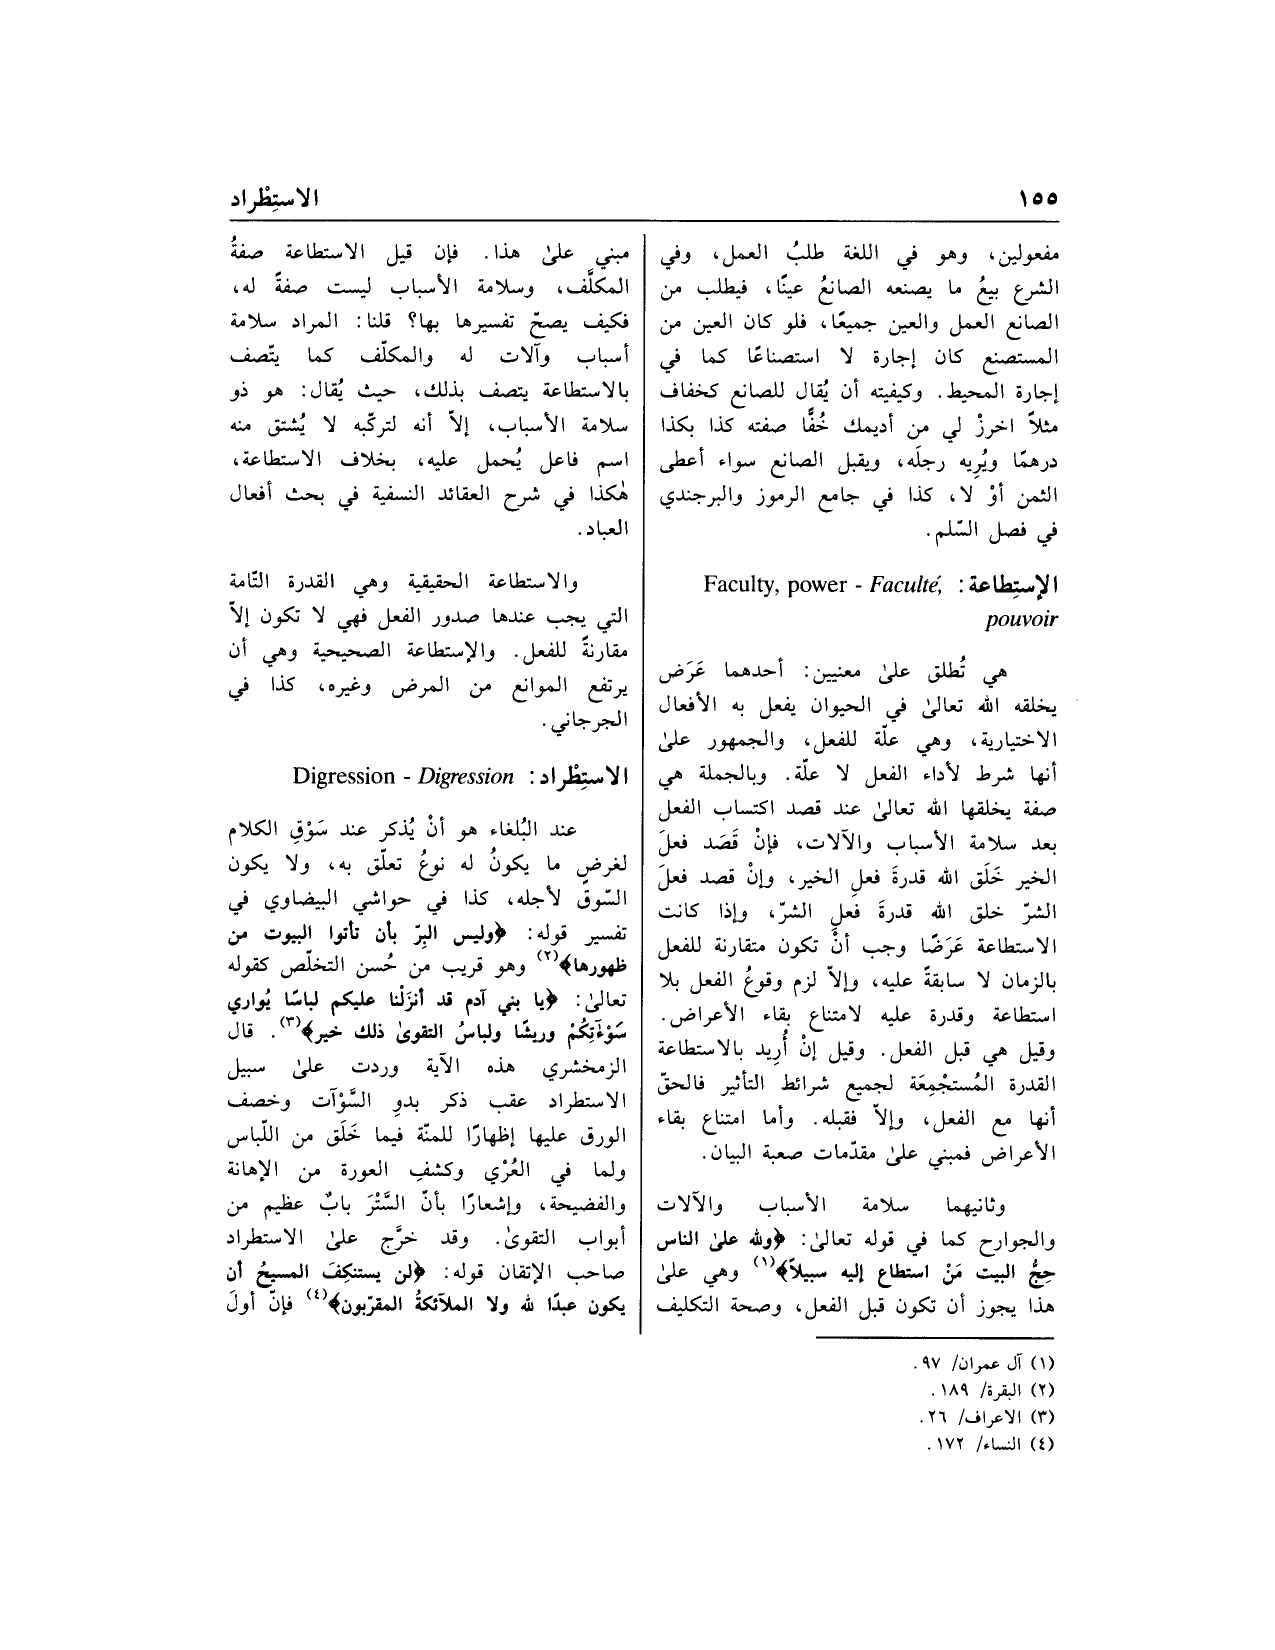 ١٥٥
الاستِطْراد
مفعولين، وهو في اللغة طلبُ العمل، وفي
الشرع بيعُ ما يصنعه الصانعُ عينًا، فيطلب من
الصانع العمل والعين جميعًا، فلو كان العين من
المستصنع كان إجارة لا استصناعًا كما في
إجارة المحيط. وكيفيته أن يُقال للصانع كخفاف
مثلاً اخرزْ لي من أديمك خُفًّا صفته كذا بكذا
درهمًا ويُرِيه رجلَه، ويقبل الصانع سواء أعطى
الثمن أوْ لا، كذا في جامع الرموز والبرجندي
في فصل السّلم.
الإستِطاعة: Faculty, power - Faculté,
pouvoir
هي تُطلق علىٰ معنيين: أحدهما عَرَض
يخلقه الله تعالىٰ في الحيوان يفعل به الأفعال
الاختيارية، وهي علّة للفعل، والجمهور علىٰ
أنها شرط لأداء الفعل لا علّة. وبالجملة هي
صفة يخلقها الله تعالىٰ عند قصد اكتساب الفعل
بعد سلامة الأسباب والآلات، فإنْ قَصَد فعلَ
الخير خَلَق الله قدرةَ فعلِ الخير، وإنْ قصد فعلَ
الشرّ خلق الله قدرةَ فعلِ الشرّ، وإذا كانت
الاستطاعة عَرَضًا وجب أنْ تكون متقارنة للفعل
بالزمان لا سابقةً عليه، وإلاّ لزم وقوعُ الفعل بلا
استطاعة وقدرة عليه لامتناع بقاء الأعراض.
وقيل هي قبل الفعل. وقيل إنْ أُريد بالاستطاعة
القدرة المُستجْمِعَة لجميع شرائط التأثير فالحقّ
أنها مع الفعل، وإلاّ فقبله. وأما امتناع بقاء
الأعراض فمبني علىٰ مقدّمات صعبة البيان.
وثانيهما سلامة الأسباب والآلات
والجوارح كما في قوله تعالىٰ: ﴿ولله علىٰ الناس
حِجُّ البيت مَنْ استطاع إليه سبيلاً﴾(١) وهي علىٰ
هذا يجوز أن تكون قبل الفعل، وصحة التكليف
مبني علىٰ هذا. فإن قيل الاستطاعة صفةُ
المكلَّف، وسلامة الأسباب ليست صفةً له،
فكيف يصحّ تفسيرها بها؟ قلنا: المراد سلامة
أسباب وآلات له والمكلّف كما يتّصف
بالاستطاعة يتصف بذلك، حيث يُقال: هو ذو
سلامة الأسباب، إلاّ أنه لتركّبه لا يُشتق منه
اسم فاعل يُحمل عليه، بخلاف الاستطاعة،
هٰكذا في شرح العقائد النسفية في بحث أفعال
العباد.
والاستطاعة الحقيقية وهي القدرة التّامة
التي يجب عندها صدور الفعل فهي لا تكون إلاّ
مقارنةً للفعل. والإستطاعة الصحيحية وهي أن
يرتفع الموانع من المرض وغيره، كذا في
الجرجاني.
الاستِطْراد: Digression - Digression
عند البُلغاء هو أنْ يُذكر عند سَوْقِ الكلام
لغرضٍ ما يكونُ له نوعُ تعلّق به، ولا يكون
السّوق لأجله، كذا في حواشي البيضاوي في
تفسير قوله: ﴿وليس البِرّ بأن تأتوا البيوت من
ظهورها﴾(٢) وهو قريب من حُسن التخلّص كقوله
تعالىٰ: ﴿يا بني آدم قد أنزَلْنا عليكم لباسًا يُواري
سَوْءَٰتِكُمْ وريشًا ولباسُ التقوىٰ ذلك خير﴾(٣). قال
الزمخشري هذه الآية وردت علىٰ سبيل
الاستطراد عقب ذكر بدوِ السَّوْآت وخصف
الورق عليها إظهارًا للمنّة فيما خَلَق من اللّباس
ولما في العُرْي وكشفِ العورة من الإهانة
والفضيحة، وإشعارًا بأنّ السَّتْرَ بابٌ عظيم من
أبواب التقوىٰ. وقد خرَّج علىٰ الاستطراد
صاحب الإتقان قوله: ﴿لن يستنكِفَ المسيحُ أن
يكون عبدًا لله ولا الملآئكةُ المقرّبون﴾(٤) فإنّ أولَ
(١) آل عمران/ ٩٧.
(٢) البقرة/ ١٨٩.
(٣) الاعراف/ ٢٦.
(٤) النساء/ ١٧٢.